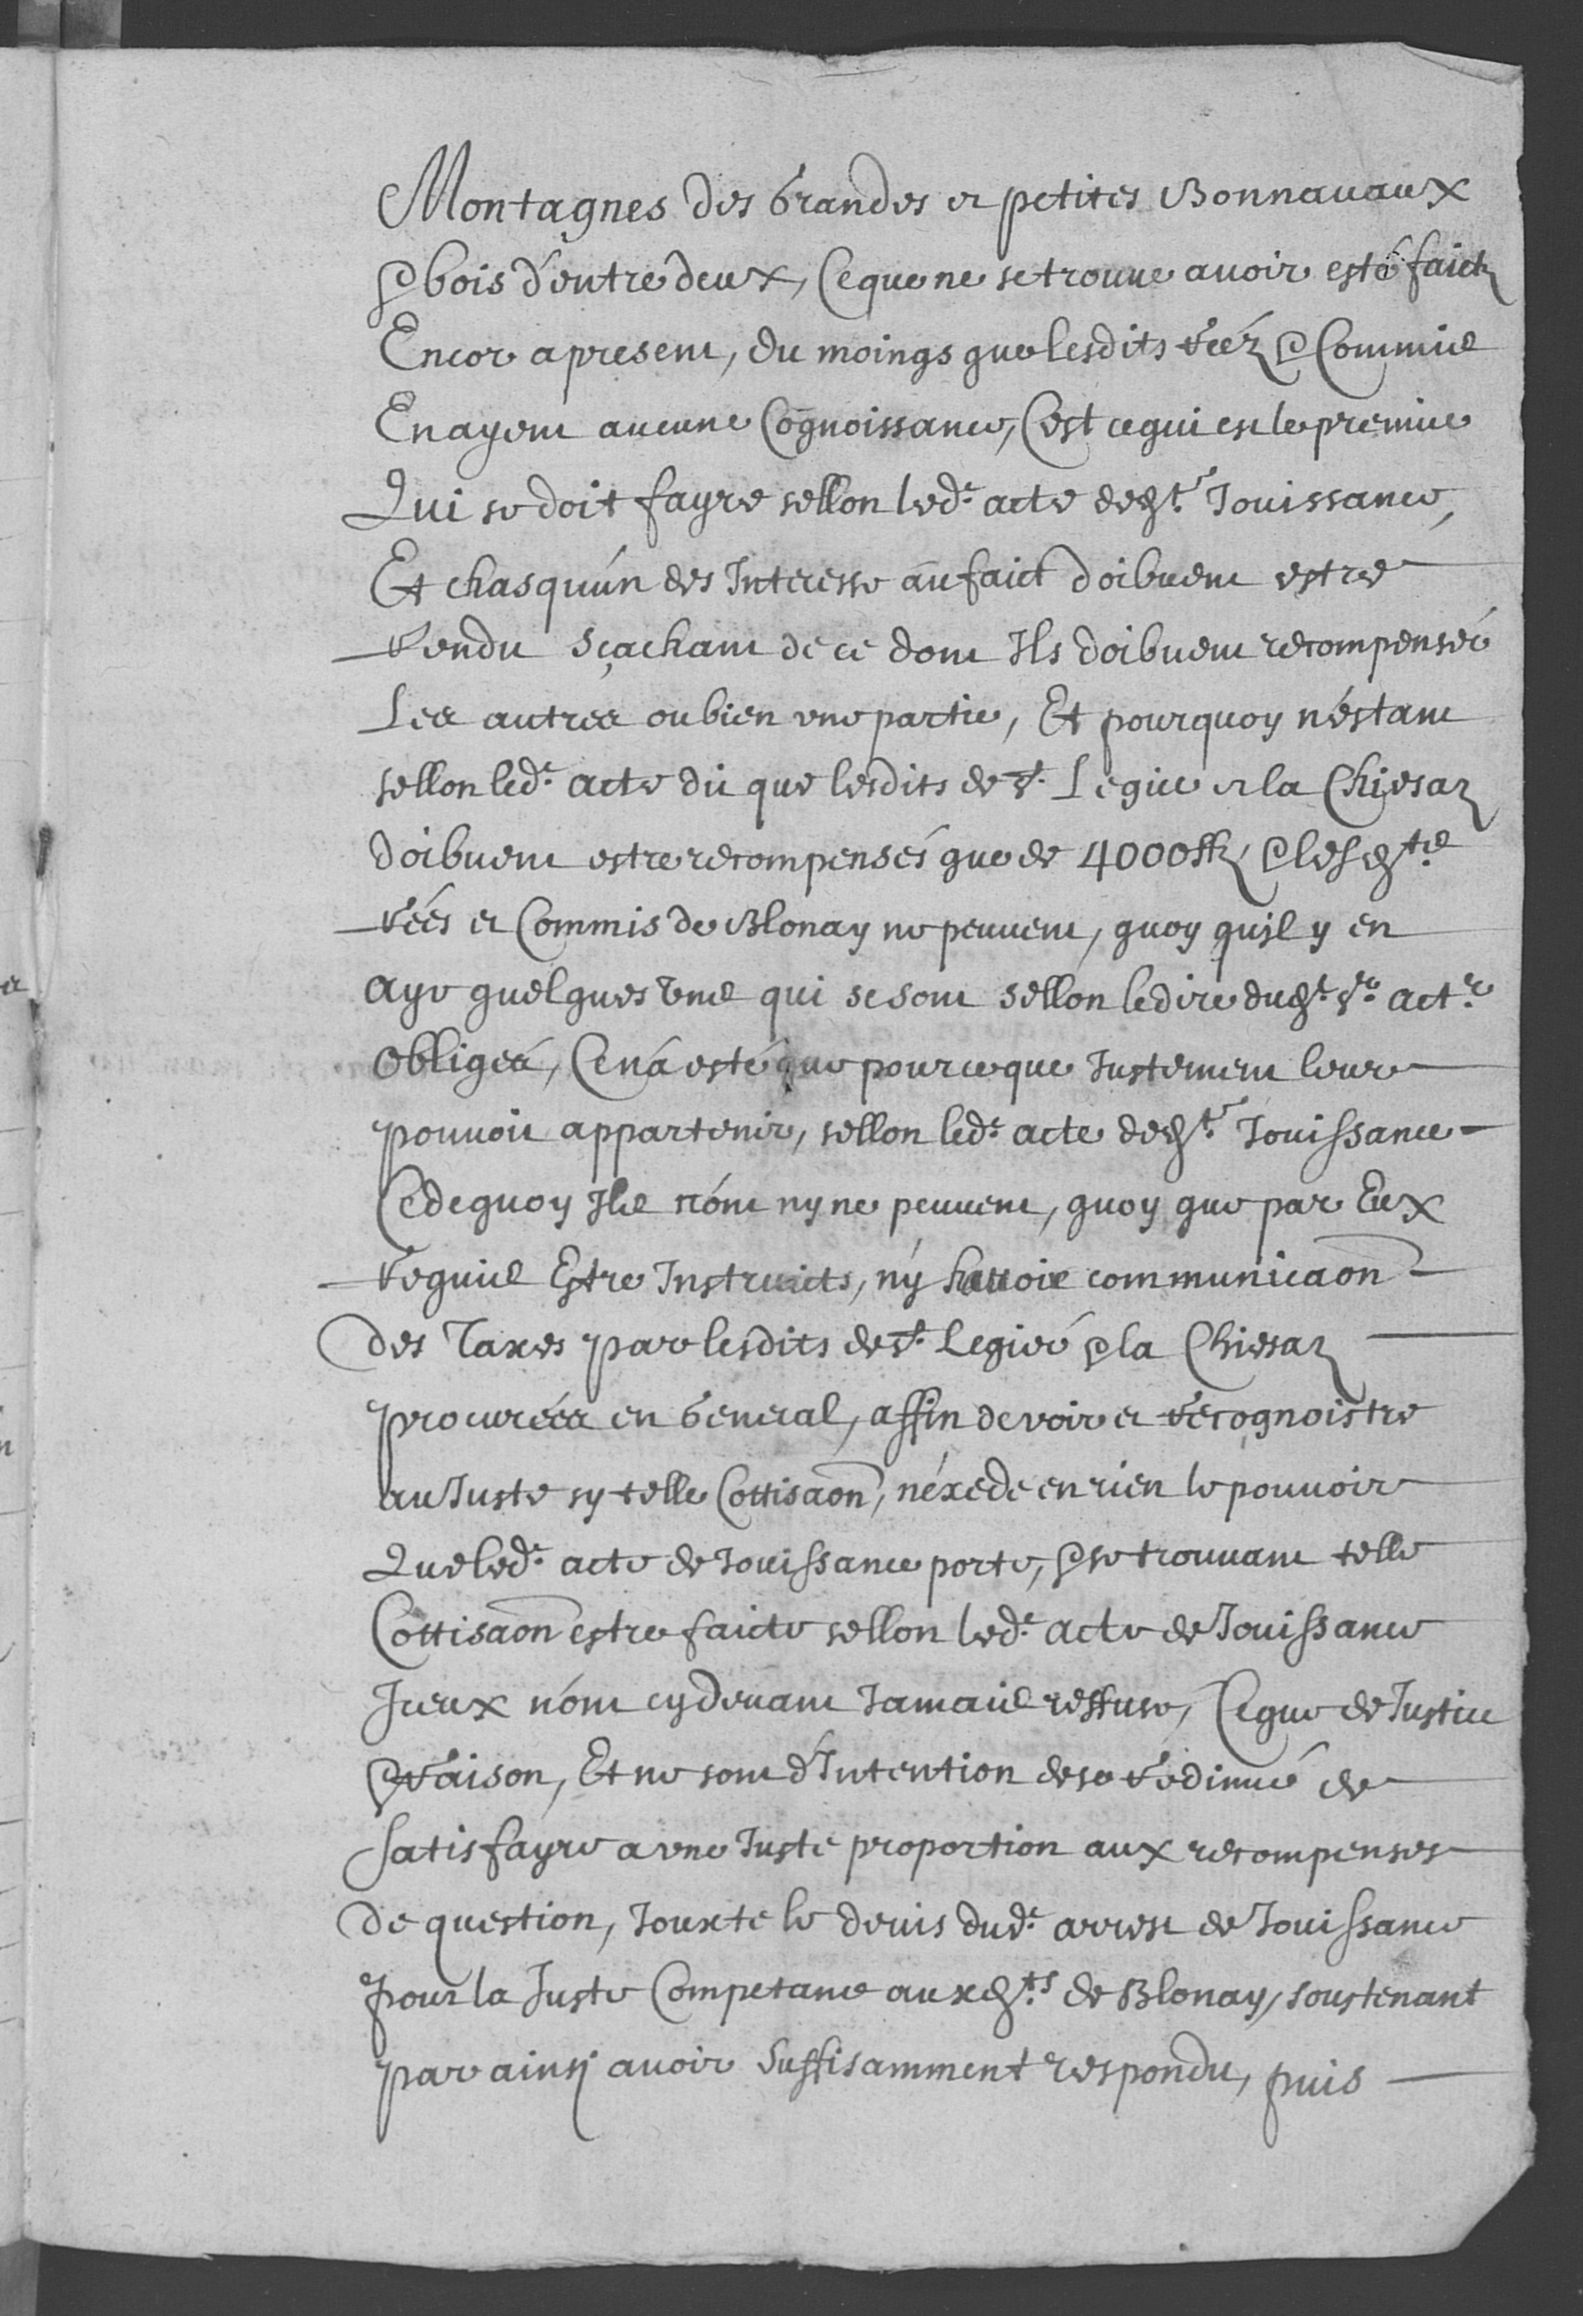 Montagnes des Grandes et petites Bonnavaux
& bois d'entre deux, Ce que ne se trouve avoir esté faict
Encor a present, du moings que lesdits reéz & Commis
En ayent aucune Cognoissance, C'est ce qui est le premier
Qui se doit fayre sellon led.t acte ded.t Jouissance,
Et chasqu'un des Interesse au faict doibvent estre
rendu sçachant de ce dont Ils doibvent recompenser
Les autres ou bien une partie, Et pourquoy n'estant
sellon led.t acte dit que lesdits de S.t Legier et la Chiesaz
doibvent estre recompensés que de 4000 ff & lesd.ts
reés et Commis de Blonay ne peuvent, quoy qu'il y en
aye quelques uns qui se sont sellon le dire dud.t S.r act.r
obligés, Ce n'a esté que pour ce que Justement leur
pouvoit appartenir, sellon led.t acte ded.t Jouissance
Ce de quoy Ils n'ont ny ne peuvent, quoy que par Eux
requis Estre Instruicts, ny havoir communicaon
des Taxes par lesdits de S.t Legier & la Chiesaz
procurées en General, affin de voir et recognoistre
au Juste sy telle Cottisaon, n'éxede en rien le pouvoir
Que led.t acte de Jouissance porte, & se trouvant telle
Cottisaon estre faicte sellon led.t acte de Jouissance
Iceux n'ont cy devant Jamais reffuse, Ce que de Justice
& raison, Et ne sont d'Intention de se redimer de
satisfayre a une Juste proportion aux recompenses
de question, Jouxte le devis dud.t arrest de Jouissance
pour la Juste Competance auxd.ts de Blonay, soustenant
par ainsj avoir suffisamment respondu, puis